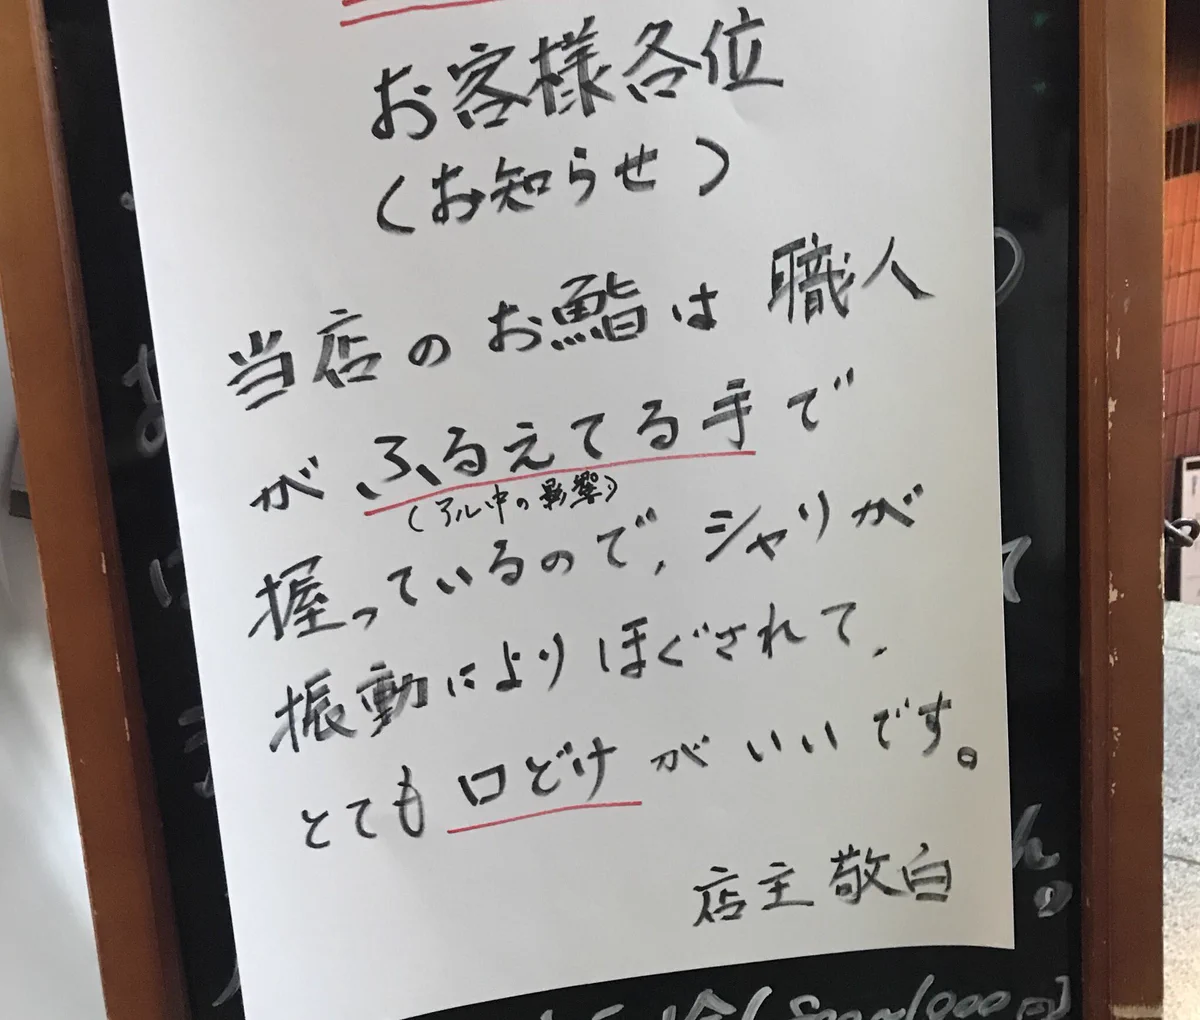 お客様各位
（お知らせ）
当店のお鮨は職人
がふるえてる手で
（アル中の影響）
握っているので、シャリが
振動によりほぐされて、
とても口どけがいいです。
店主敬白